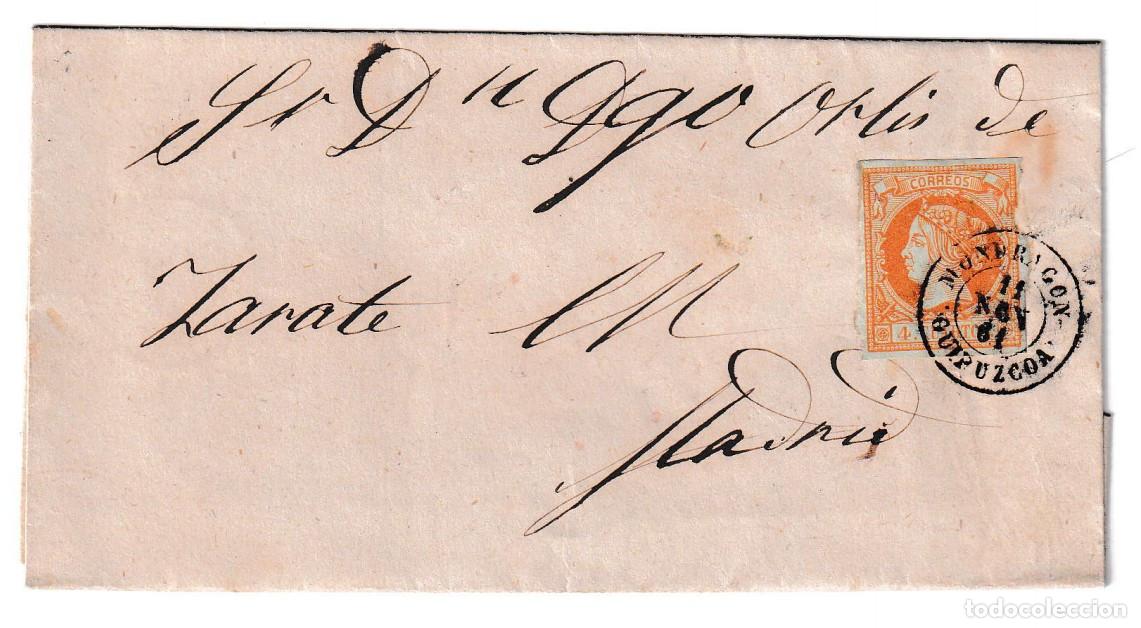 Sr Dn Dgo Ortis de
Zarate M
Madrid
CORREOS
4 CTOS
MONDRAGON
11
NOV
61
GUIPUZCOA
todocoleccion